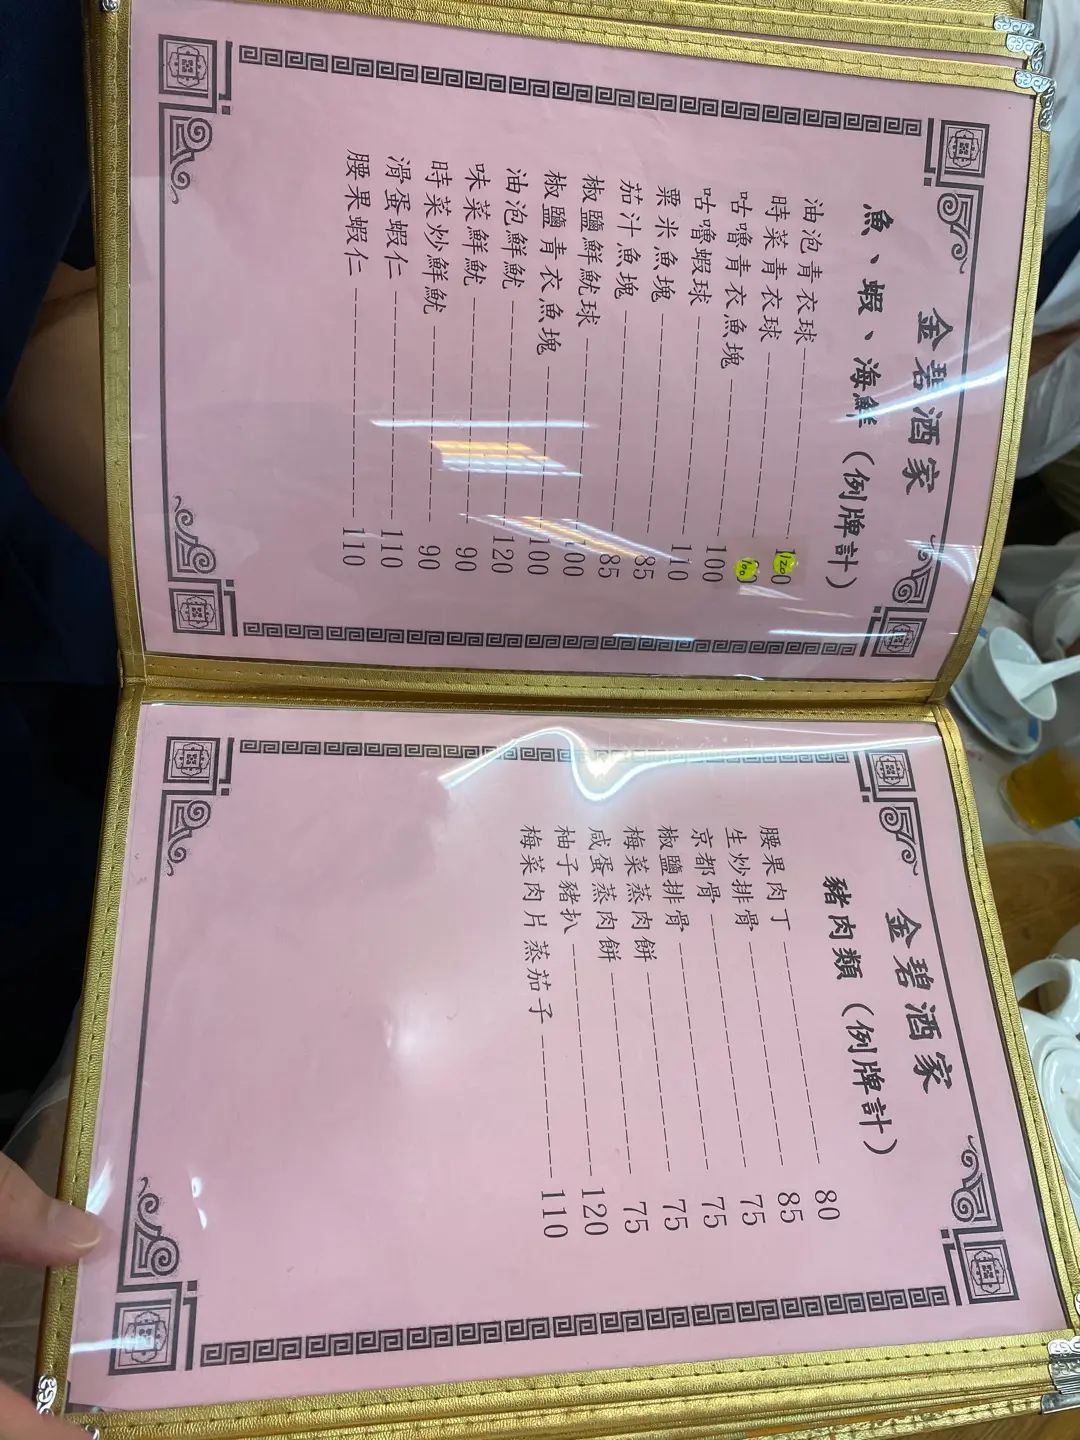 金碧酒家
魚、蝦、海鮮(例牌計)
油泡青衣球 120
時菜青衣球 100
咕嚕青衣魚塊 100
咕嚕蝦球 110
粟米魚塊 85
茄汁魚塊 85
椒鹽鮮魷球 100
椒鹽青衣魚塊 100
油泡鮮魷 120
味菜鮮魷 90
時菜炒鮮魷 90
滑蛋蝦仁 110
腰果蝦仁 110
金碧酒家
豬肉類(例牌計)
腰果肉丁 80
生炒排骨 85
京都骨 75
椒鹽排骨 75
梅菜蒸肉餅 75
咸蛋蒸肉餅 75
柚子豬扒 120
梅菜肉片蒸茄子 110